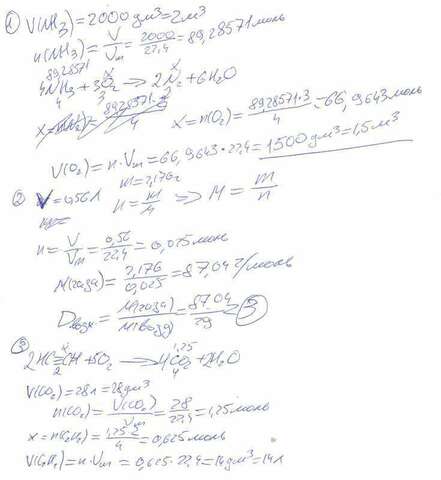 ① V(NH₃)=2000дм³=2м³
n(NH₃)=V/Vm=2000/22,4=89,28571моль
89,28571 x
4NH₃+3O₂→2N₂+6H₂O
4 3 2
x=n(O₂)=89,28571·3/4=66,9643моль
V(O₂)=n·Vm=66,9643·22,4=1500дм³=1,5м³
② V=0,56л m=2,176г n=m/M ⇒ M=m/n
n=V/Vm=0,56/22,4=0,025моль
M(газа)=2,176/0,025=87,04г/моль
Dвозд=M(газа)/M(возд)=87,04/29=3
③ x 1,25
2HC≡CH+5O₂→4CO₂+2H₂O
2 4
V(CO₂)=28л=28дм³
n(CO₂)=V(CO₂)/Vm=28/22,4=1,25моль
x=n(C₂H₂)=1,25·2/4=0,625моль
V(C₂H₂)=n·Vm=0,625·22,4=14дм³=14л